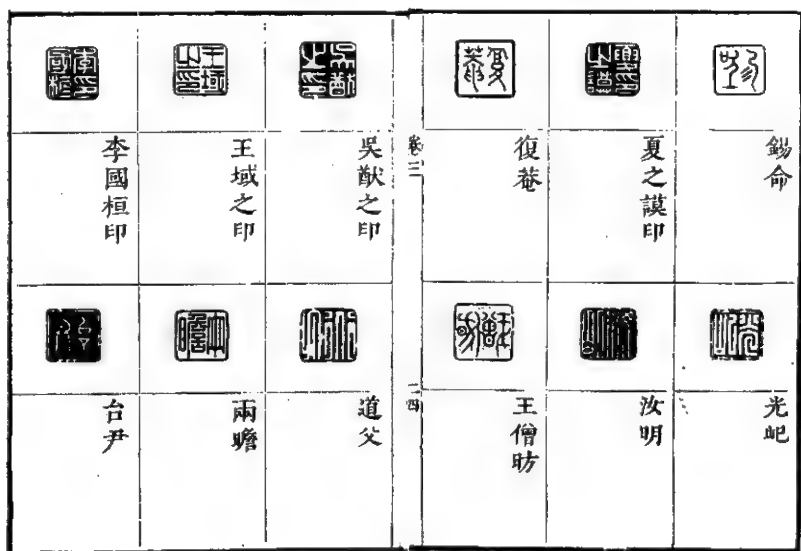 錫命
夏之謨印
復菴
光屺
汝明
王僧昉
卷三
四
吳猷之印
王域之印
李國桓印
道父
兩瞻
台尹